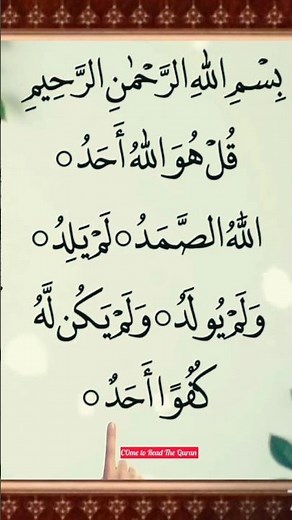 بِسْمِ اللهِ الرَّحْمٰنِ الرَّحِيمِ
قُلْ هُوَ اللهُ أَحَدُ ○
اللهُ الصَّمَدُ ○ لَمْ يَلِدُ ○
وَلَمْ يُولَدُ ○ وَلَمْ يَكُن لَّهُ
كُفُوًا أَحَدٌ ○
COme to Read The Quran